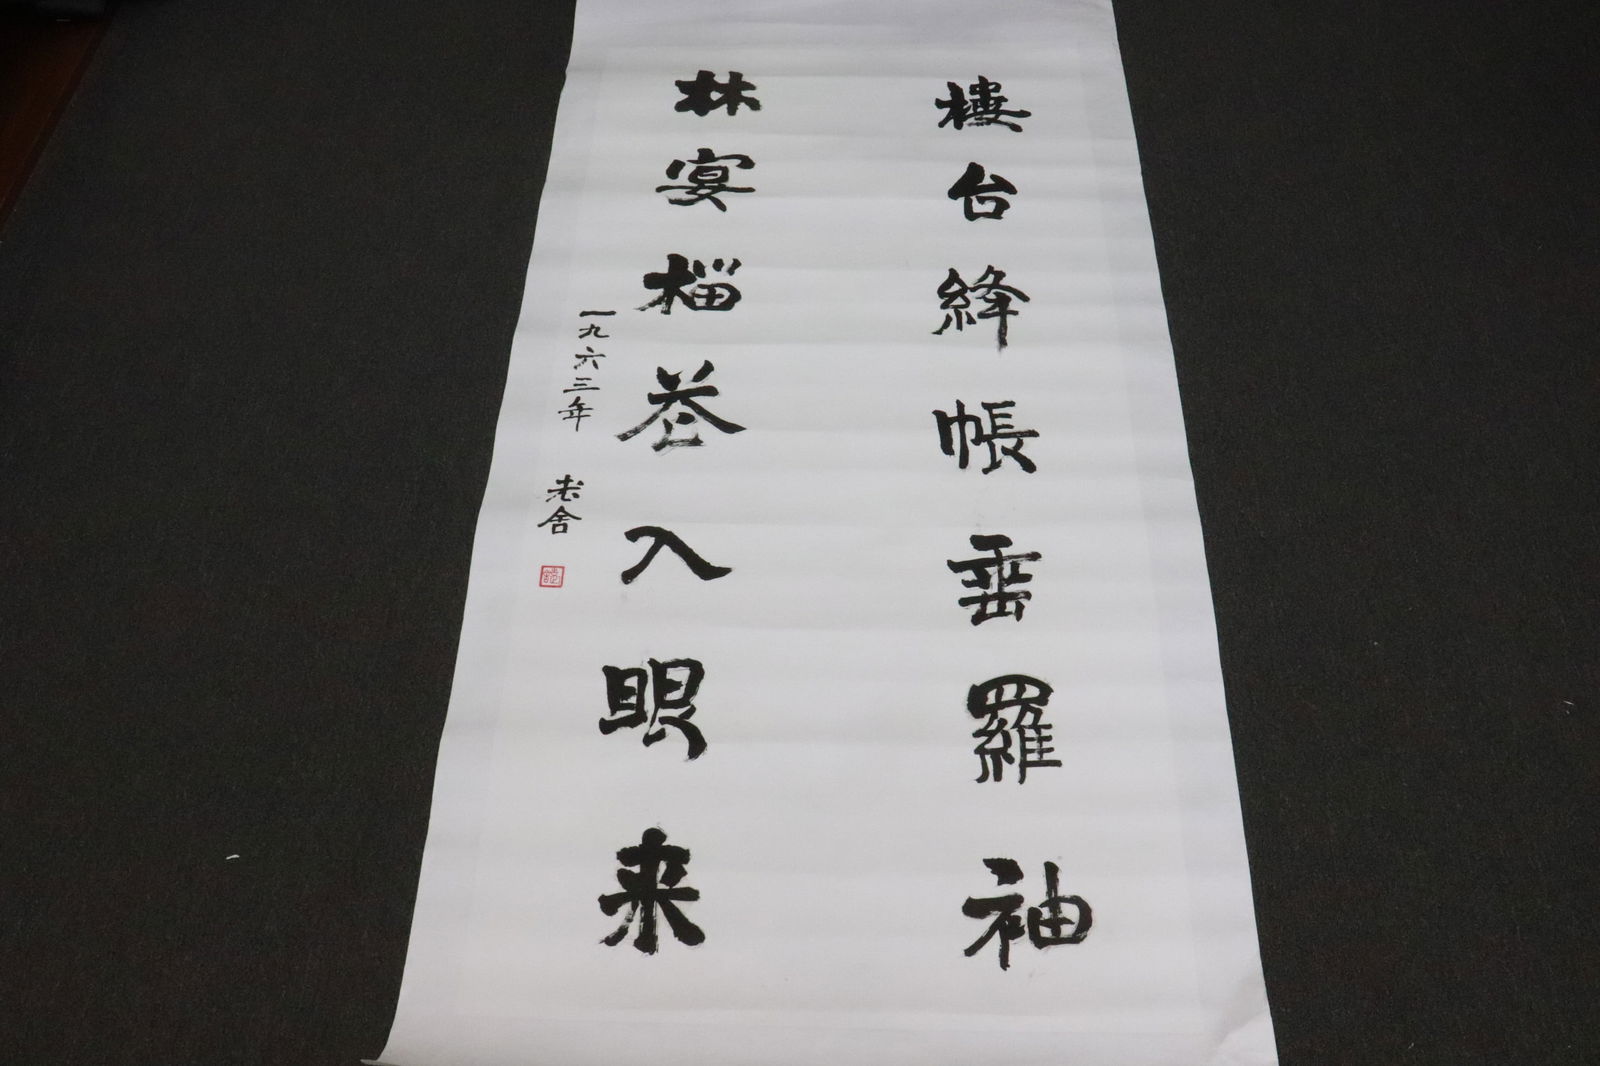 樓台絳帳垂羅袖
林宴榴花入眼来
一九六三年 老舍